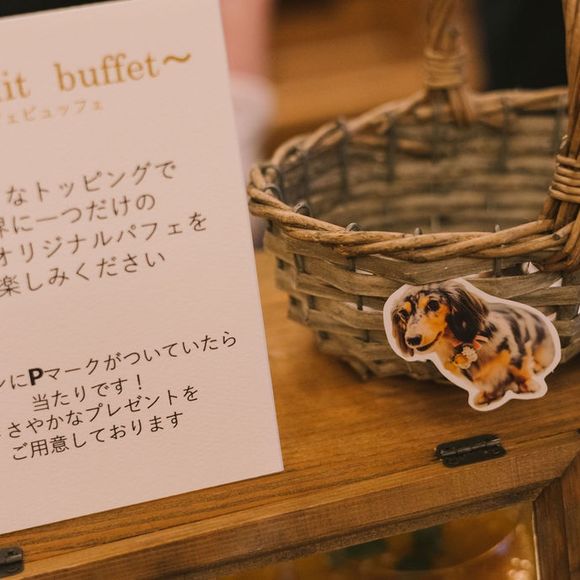 it buffet～
フェビュッフェ
なトッピングで
界に一つだけの
オリジナルパフェを
楽しみください
ンにPマークがついていたら
当たりです！
ささやかなプレゼントを
ご用意しております